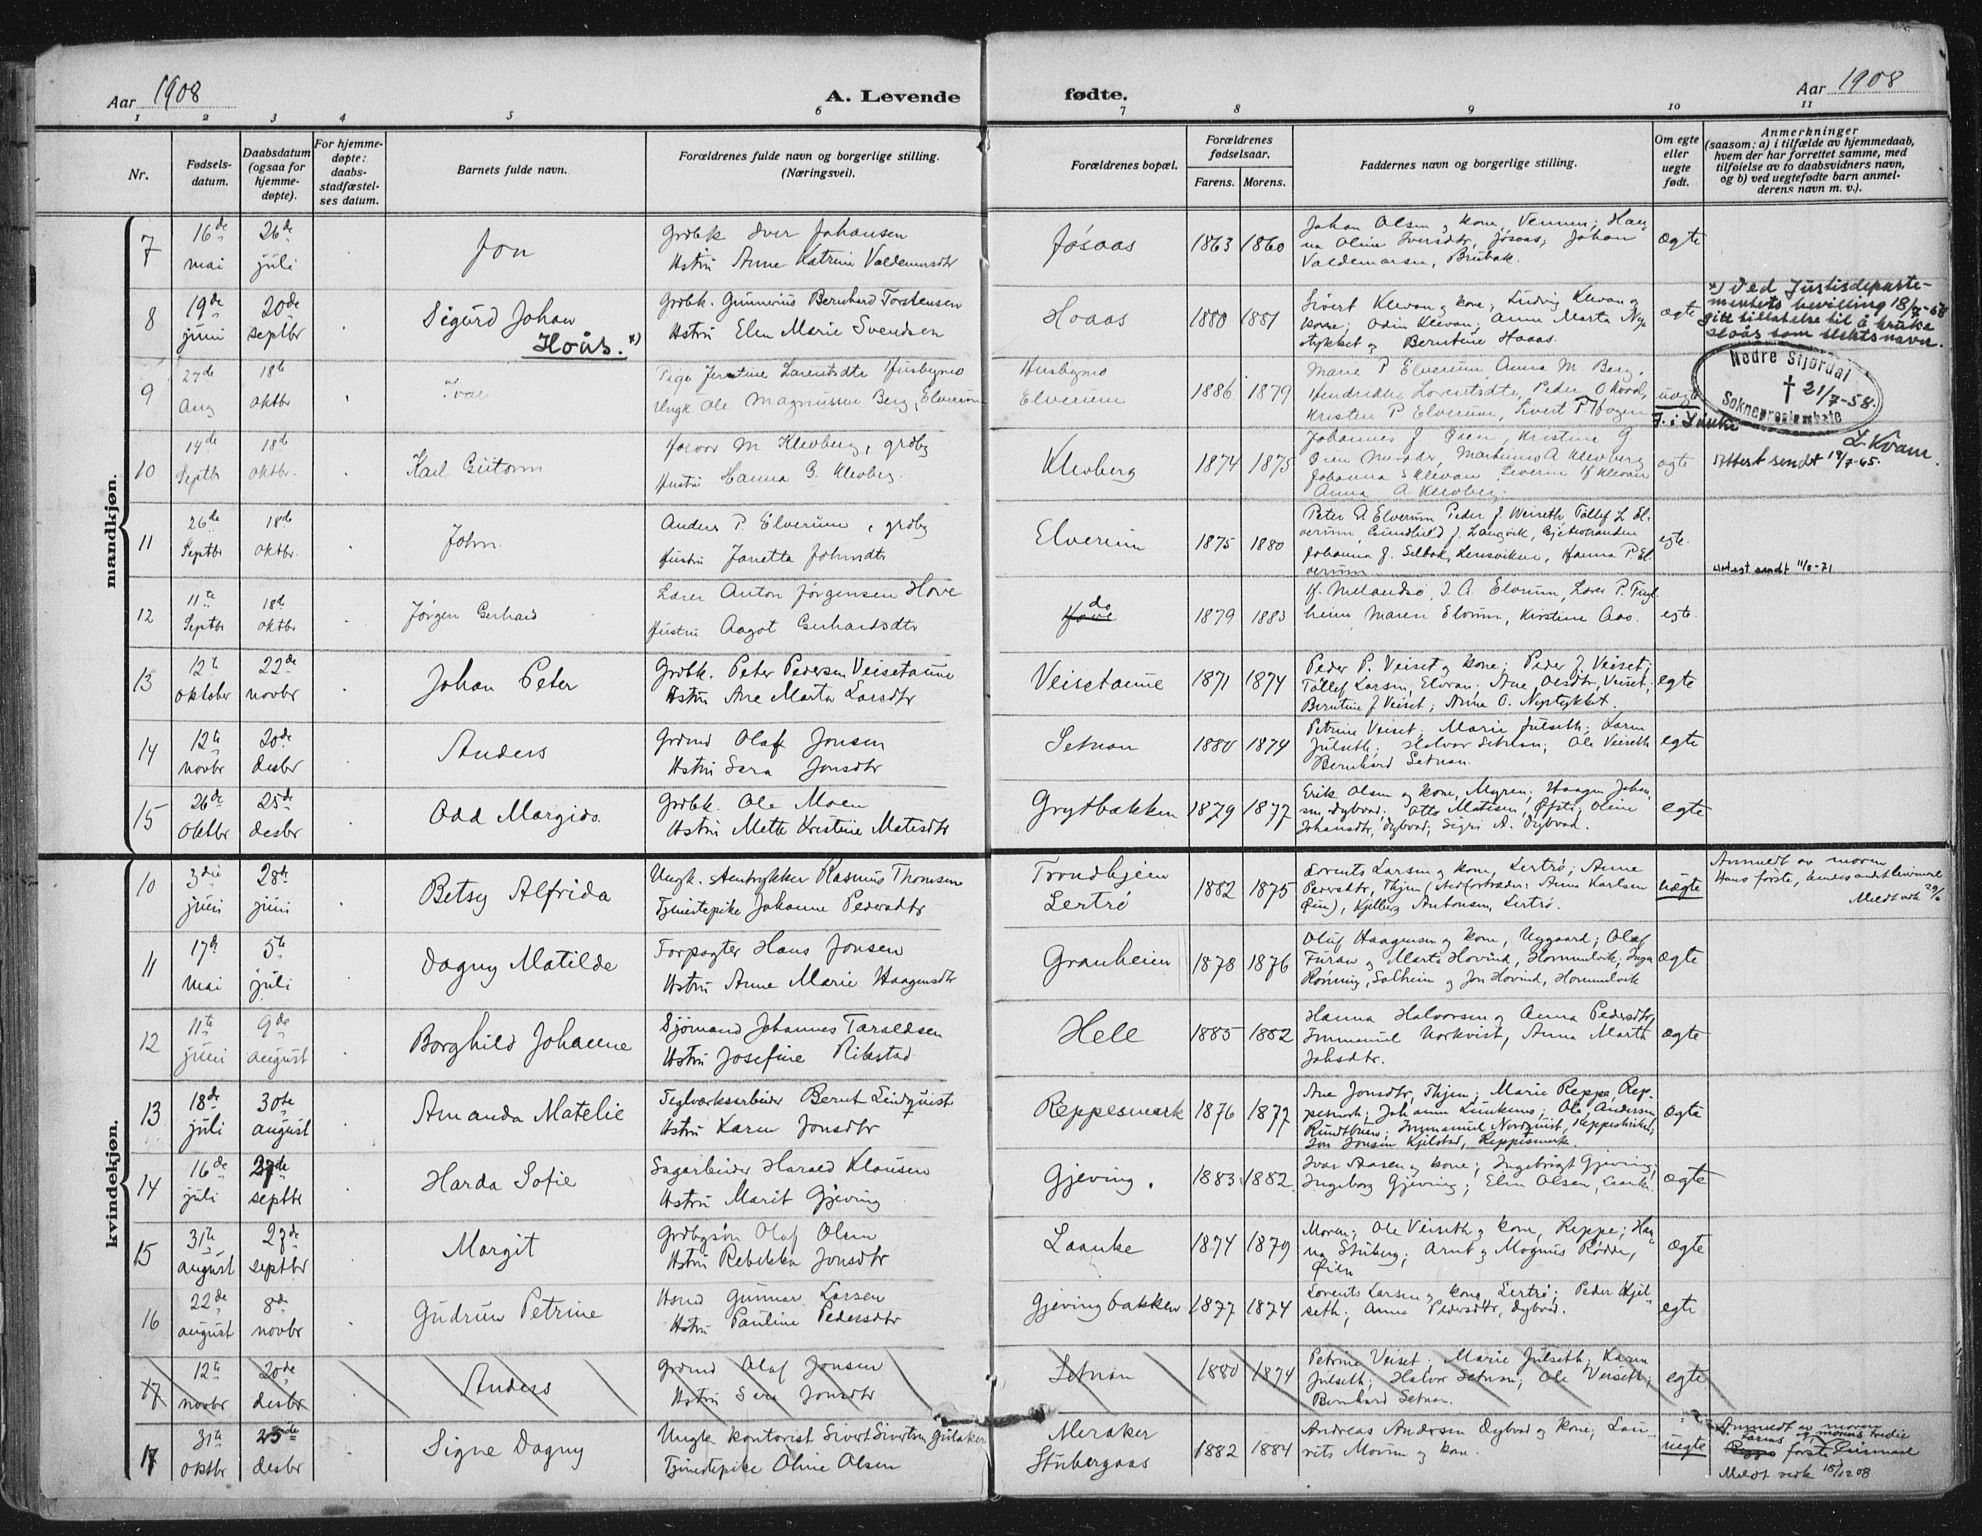 Aar 1908
A. Levende fødte.
Aar 1908
1 2 3 4 5 6 7 8 9 10 11
Nr.
Fødsels-
datum.
Daabsdatum
(ogsaa for
hjemme-
døpte).
For hjemme-
døpte:
daabs-
stadfæstel-
ses datum.
Barnets fulde navn.
Forældrenes fulde navn og borgerlige stilling.
(Næringsvei).
Forældrenes bopæl.
Forældrenes
fødselsaar.
Farens. Morens.
Faddernes navn og borgerlige stilling.
Om egte
eller
uegte
født.
Anmerkninger
(saasom: a) i tilfælde av hjemmedaab,
hvem der har forrettet samme, med
tilføielse av to daabsvidners navn,
og b) ved uegtefødte barn anmel-
derens navn m. v.).
mandkjøn.
7
16de
mai
26de
juli
Jon
Grdbk Iver Johansen
Hstru Anne Katrine Valdemarsdtr
Jøsaas
1863 1860
Johan Olsen og kone, Venum; Han-
na Oline Iversdtr, Jøsaas; Johan
Valdemarsen, Brubak.
Ægte
8
19de
juni
20de
septbr
Sigurd Johan
Hoås. x)
Grdbk. Gunnerius Bernhard Torstensen
Hstru Elen Marie Svendsen
Hoaas
1880 1881
Sivert Klevan og kone; Ludvig Klevan og
kone; Odin Klevan; Anne Marta Nys
tykket og Berntine Hoaas.
Ægte
x) Ved Justisdeparte-
mentets bevilling 18/7-58
gitt tillatelse til å bruke
Hoås som slektsnavn.
Nedre Stjørdal
21/7-58.
Sokneprestembete
L. Kvam.
9
27de
Aug
18de
oktbr
Ivar
Pige Jentine Larentsdtr Husbymo
Ungk Ole Magnussen Berg, Elverum
Husbymo
Elverum
1886 1879
Marie P Elverum Anna M. Berg.
Hendrikke Lorentsdtr, Peder O
Kristen P Elverum, Sivert P Hagen
uegte
F. i Lånke
10
14de
Septbr
18de
oktbr.
Karl Guttorm
Halvor M Klevberg, grdbg
Hustru Hanna G. Klevberg.
Klevberg
1874 1875
Johannes J. Øien, Kristine G
Øien Martinus A Klevberg
Johanna S Klevan Severin H Klevan
Anna A Klevberg.
egte
Attest sendt 19/7-65.
11
26de
Septbr
18de
oktbr.
John.
Anders P. Elverum, grdbg
Hustru Janetta Johnsdtr
Elverum
1875 1880
Peter A Elverum Peder J. Weiseth, Tollef L El-
verum, Gunhild J. Langvik, Gjetestranden
Johanna J. Selbak, Lensviken, Hanna P El-
verum
egte.
Attest sendt 11/8-71
12
11te
Septbr
18de
oktbr
Jørgen Gerhard
Lærer Anton Jørgensen Hove
Hustru Aagot Gerhardsdtr
do
Hove
1879 1883
H. Melandsø, I. A. Elverum, Lærer P. Fugl
heim Maren Elverum, Kirstine Aas.
egte.
13
12te
oktober
22de
novbr
Johan Peter
Grdbk. Peter Pedersen Veisetaune
Hstru Ane Marta Larsdtr
Veisetaune
1871 1874
Peder P. Veiset og kone; Peder J. Veiset;
Tollef Larsen, Elvran; Ane Olsdtr, Veiset;
Berntine J Veiset; Anna O. Nystykket.
egte
14
12te
novbr
20de
desbr
Anders
Grdmd Olaf Jonsen
Hstru Sara Jonsdtr
Setnan
1880 1874
Petrine Veiset; Marie Julseth; Karen
Julseth; Halvor Setnan; Ole Veiseth
Bernhard Setnan.
egte
15
26de
oktbr
25de
desbr
Odd Margido.
Grdbk. Ole Moen
Hstru Mette Kristine Matisdtr
Grytbakken
1879 1877
Erik Olsen og kone, Myren; Haagen Johan-
sen, Dybvad; Otto Matisen, Øfsti; Oline
Johansdtr, Dybvad; Sigri A. Dybvad.
egte
kvindekjøn.
10
3die
juni
28de
juni
Betsy Alfrida
Ungk. Stentrykker Rasmus Thomsen
Tjenestepike Johanne Pedersdtr
Trondhjem
Lertrø
1882 1875
Lorents Larsen og kone, Lertrø; Anne
Persdtr, Thjem (stedfortræder: Anne Karlsen
Øien), Kjelberg Antonsen, Lertrø.
uægte
Anmeldt av moren
Hans første, hendes andet leiermaal
Meldt vrk 29/6
11
17de
mai
5te
juli
Dagny Matilde
Forpagter Hans Jonsen
Hstru Anne Marie Haagensdtr
Granheim
1878 1876
Oluf Haagensen og kone, Nygaard; Olaf
Furan og Marta Hovind, Hommelvik; Inga
Rønning, Solheim og Jon Hovind, Hommelvik
Ægte
12
11te
juni
9de
august
Borghild Johanne
Sjømand Johannes Taraldsen
Hstru Josefine Ribstad
Hell
1885 1882
Hanna Halvorsen og Anna Pedersdtr,
Immanuel Norkvist, Anna Marta
Johsdtr.
Ægte
13
18de
juli
30te
august
Amanda Matelie
Teglværksarbeider Bernt Lindquist
Hstru Karen Jonsdtr
Reppesmark
1876 1877
Ane Jonsdtr, Thjem; Marie Reppe, Rep-
pesmark; Johanna Linkins; Ole Andersen,
Rundtbuen; Immanuel Nordquist, Reppeshriken;
Jon Jonsen Kjelstad, Reppesmark
Ægte
14
16de
juli
27de
septbr
Harda Sofie
Sagarbeider Harald Klausen
Hstru Marit Gjeving
Gjeving.
1883 1882
Ivar Aasen og kone; Ingebrigt Gjeving;
Ingeborg Gjeving; Elin Olsen, Laanke.
Ægte
15
31te
august
27de
septbr
Margit
Grdbgsøn Olaf Olsen
Hstru Rebekka Jonsdtr
Laanke
1874 1879
Moren; Ole Veiseth og kone, Reppe; Han-
na Stuberg; Arnt og Magnus Rødde,
Øien
Ægte
16
22de
august
8de
novbr
Gudrun Petrine
Hsmd Gunnar Larsen
Hstru Pauline Pedersdtr
Gjevingbakken
1877 1874
Lorents Larsen og kone, Lertrø; Peder Kjel-
seth; Anna Pedersdtr, Dybvad.
egte
17
12te
novbr
20de
desbr
Anders
Grdmd Olaf Jonsen
Hstru Sara Jonsdtr
Setnan
1880 1874
Petrine Veiset; Marie Julseth; Karen
Julseth; Halvor Setnan; Ole Veiseth;
Bernhard Setnan.
egte
17
31te
oktbr
25de
desbr
Signe Dagny
Ungk. kontorist Sivert Sivertsen Gulaker
Tjenestepike Oline Olsen
Meraker
Stubergaas
1882 1884
Andreas Andersen Dybvad og kone, Lau-
rits Moum og kone.
uegte
Anmeldt av moren
farens og morens tredie
første Leiermaal
Meldt verk 18/12 08